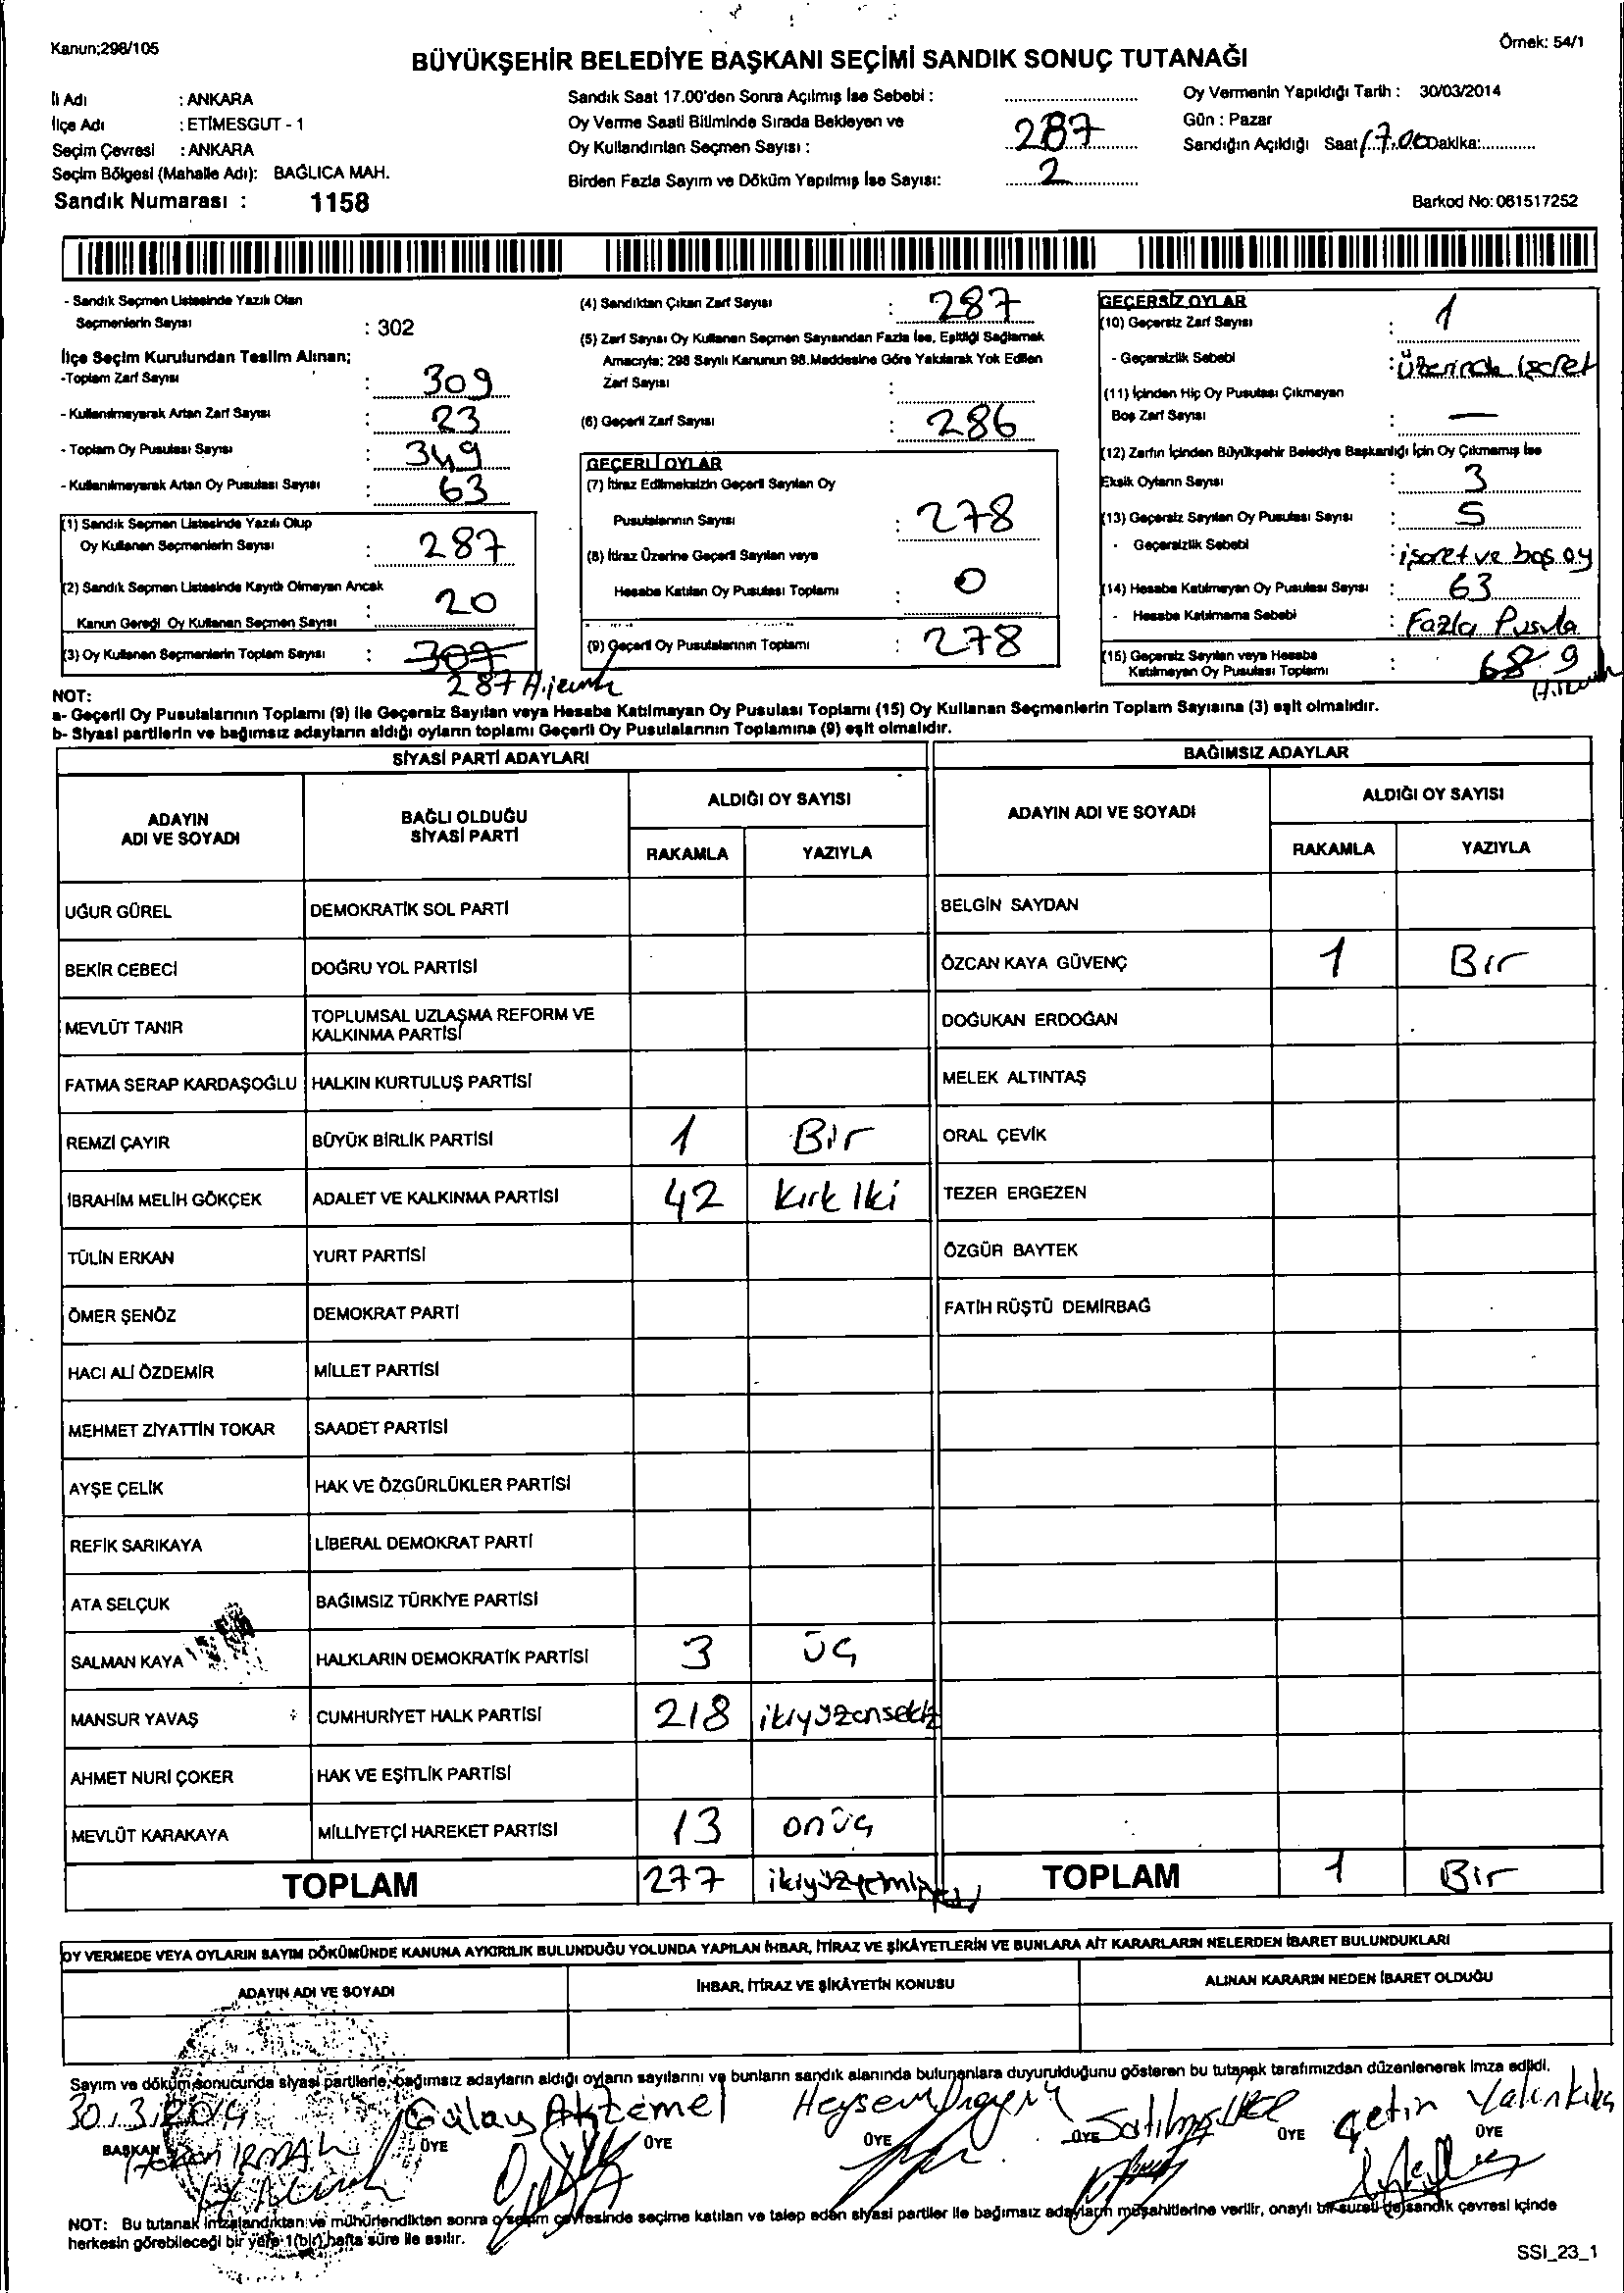 Kanun;298/105
Örnek: 54/1
BÜYÜKŞEHİR BELEDİYE BAŞKANI SEÇİMİ SANDIK SONUÇ TUTANAĞI
İl Adı : ANKARA
İlçe Adı : ETİMESGUT - 1
Seçim Çevresi : ANKARA
Seçim Bölgesi (Mahalle Adı): BAĞLICA MAH.
Sandık Numarası : 1158
Sandık Saat 17.00'den Sonra Açılmış İse Sebebi :
Oy Verme Saati Bitiminde Sırada Bekleyen ve
Oy Kullandırılan Seçmen Sayısı : 287
Birden Fazla Sayım ve Döküm Yapılmış İse Sayısı: 2
Oy Vermenin Yapıldığı Tarih : 30/03/2014
Gün : Pazar
Sandığın Açıldığı Saat 17.00 Dakika:
Barkod No: 061517252
- Sandık Seçmen Listesinde Yazılı Olan
Seçmenlerin Sayısı : 302
İlçe Seçim Kurulundan Teslim Alınan;
-Toplam Zarf Sayısı : 309
- Kullanılmayarak Artan Zarf Sayısı : 23
- Toplam Oy Pusulası Sayısı : 349
- Kullanılmayarak Artan Oy Pusulası Sayısı : 63
(1) Sandık Seçmen Listesinde Yazılı Olup
Oy Kullanan Seçmenlerin Sayısı : 287
(2) Sandık Seçmen Listesinde Kayıtlı Olmayan Ancak
Kanun Gereği Oy Kullanan Seçmen Sayısı : 20
(3) Oy Kullanan Seçmenlerin Toplam Sayısı : 307
287
(4) Sandıktan Çıkan Zarf Sayısı : 287
(5) Zarf Sayısı Oy Kullanan Seçmen Sayısından Fazla İse, Eşitliği Sağlamak
Amacıyla; 298 Sayılı Kanunun 98.Maddesine Göre Yakılarak Yok Edilen
Zarf Sayısı :
(6) Geçerli Zarf Sayısı : 286
GEÇERLİ OYLAR
(7) İtiraz Edilmeksizin Geçerli Sayılan Oy
Pusulalarının Sayısı : 278
(8) İtiraz Üzerine Geçerli Sayılan veya
Hesaba Katılan Oy Pusulası Toplamı : 0
(9) Geçerli Oy Pusulalarının Toplamı : 278
GEÇERSİZ OYLAR
(10) Geçersiz Zarf Sayısı : 1
- Geçersizlik Sebebi : üzerinde işaret
(11) İçinden Hiç Oy Pusulası Çıkmayan
Boş Zarf Sayısı : —
(12) Zarfın İçinden Büyükşehir Belediye Başkanlığı İçin Oy Çıkmamış İse
Eksik Oyların Sayısı : 3
(13) Geçersiz Sayılan Oy Pusulası Sayısı : 5
- Geçersizlik Sebebi : işaret ve boş oy
(14) Hesaba Katılmayan Oy Pusulası Sayısı : 63
- Hesaba Katılmama Sebebi : Fazla Pusula
(15) Geçersiz Sayılan veya Hesaba
Katılmayan Oy Pusulası Toplamı : 68 9
NOT:
a- Geçerli Oy Pusulalarının Toplamı (9) ile Geçersiz Sayılan veya Hesaba Katılmayan Oy Pusulası Toplamı (15) Oy Kullanan Seçmenlerin Toplam Sayısına (3) eşit olmalıdır.
b- Siyasi partilerin ve bağımsız adayların aldığı oyların toplamı Geçerli Oy Pusulalarının Toplamına (9) eşit olmalıdır.
SİYASİ PARTİ ADAYLARI
ADAYIN ADI VE SOYADI BAĞLI OLDUĞU SİYASİ PARTİ ALDIĞI OY SAYISI
RAKAMLA YAZIYLA
UĞUR GÜREL DEMOKRATİK SOL PARTİ
BEKİR CEBECİ DOĞRU YOL PARTİSİ
MEVLÜT TANIR TOPLUMSAL UZLAŞMA REFORM VE KALKINMA PARTİSİ
FATMA SERAP KARDAŞOĞLU HALKIN KURTULUŞ PARTİSİ
REMZİ ÇAYIR BÜYÜK BİRLİK PARTİSİ 1 Bir
İBRAHİM MELİH GÖKÇEK ADALET VE KALKINMA PARTİSİ 42 Kırk İki
TÜLİN ERKAN YURT PARTİSİ
ÖMER ŞENÖZ DEMOKRAT PARTİ
HACI ALİ ÖZDEMİR MİLLET PARTİSİ
MEHMET ZİYATTİN TOKAR SAADET PARTİSİ
AYŞE ÇELİK HAK VE ÖZGÜRLÜKLER PARTİSİ
REFİK SARIKAYA LİBERAL DEMOKRAT PARTİ
ATA SELÇUK BAĞIMSIZ TÜRKİYE PARTİSİ
SALMAN KAYA HALKLARIN DEMOKRATİK PARTİSİ 3 üç
MANSUR YAVAŞ CUMHURİYET HALK PARTİSİ 218 ikiyüzonsekiz
AHMET NURİ ÇOKER HAK VE EŞİTLİK PARTİSİ
MEVLÜT KARAKAYA MİLLİYETÇİ HAREKET PARTİSİ 13 onüç
TOPLAM 277
BAĞIMSIZ ADAYLAR
ADAYIN ADI VE SOYADI ALDIĞI OY SAYISI
RAKAMLA YAZIYLA
BELGİN SAYDAN
ÖZCAN KAYA GÜVENÇ 1 Bir
DOĞUKAN ERDOĞAN
MELEK ALTINTAŞ
ORAL ÇEVİK
TEZER ERGEZEN
ÖZGÜR BAYTEK
FATİH RÜŞTÜ DEMİRBAĞ
TOPLAM 1 Bir
OY VERMEDE VEYA OYLARIN SAYIM DÖKÜMÜNDE KANUNA AYKIRILIK BULUNDUĞU YOLUNDA YAPILAN İHBAR, İTİRAZ VE ŞİKÂYETLERİN VE BUNLARA AİT KARARLARIN NELERDEN İBARET BULUNDUKLARI
ADAYIN ADI VE SOYADI İHBAR, İTİRAZ VE ŞİKÂYETİN KONUSU ALINAN KARARIN NEDEN İBARET OLDUĞU
Sayım ve döküm sonucunda siyasi partilerle, bağımsız adayların aldığı oyların sayılarını ve bunların sandık alanında bulunanlara duyurulduğunu gösteren bu tutanak tarafımızdan düzenlenerek imza edildi.
30.3.2014 Gülay Aktemel Çetin Yalınkılıç
BAŞKAN ÜYE ÜYE ÜYE ÜYE ÜYE ÜYE
NOT: Bu tutanak imzalandıktan ve mühürlendikten sonra o seçim çevresinde seçime katılan ve talep eden siyasi partiler ile bağımsız adayların müşahitlerine verilir, onaylı bir sureti de sandık çevresi içinde
herkesin görebileceği bir yere 1(bir) hafta süre ile asılır.
SSI_23_1